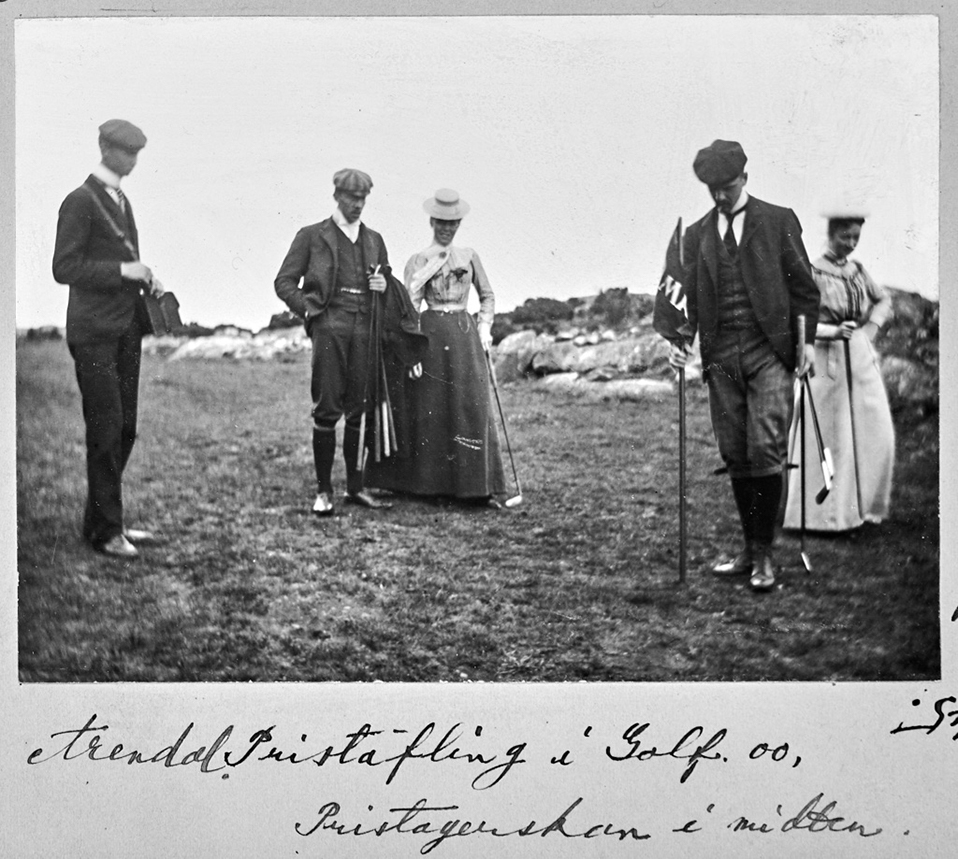 MA
Arendal. Pristäfling i Golf. 00,
Pristagerskan i midten.